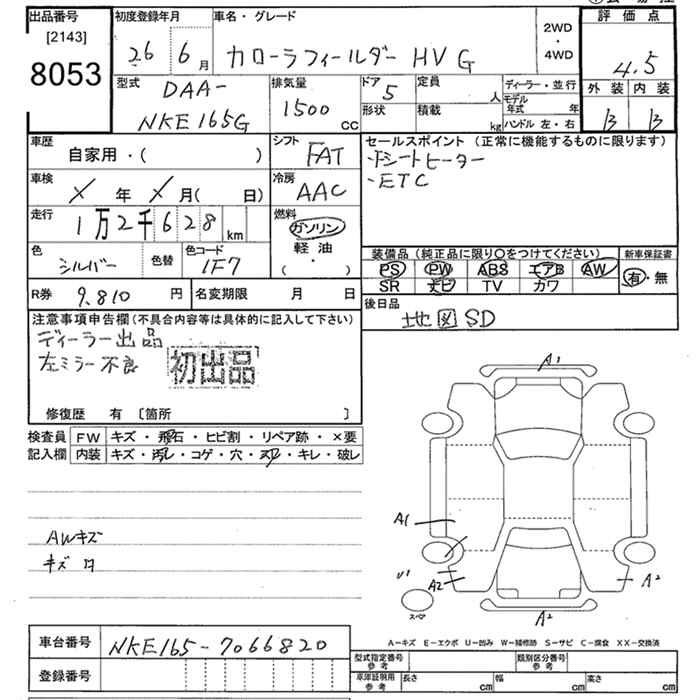 出品番号
[2143]
8053
初度登録年月
26 6月
車名・グレード
カローラフィールダー HV G
2WD
・
4WD
評価点
4.5
外装 内装
B B
型式
DAA-
NKE165G
排気量
1500
cc
ドア
5
形状
定員
人
積載
kg
ディーラー・並行
モデル年式 年
ハンドル 左・右
車歴
自家用・( )
シフト
FAT
車検
X年X月( 日)
冷房
AAC
走行
1万2千628km
燃料
ガソリン
軽油
( ・ )
色
シルバー
色替
色コード
1F7
R券
9,810 円
名変期限 月 日
セールスポイント(正常に機能するものに限ります)
・ドシートヒーター
・ETC
装備品(純正品に限り○をつけてください)
PS PW ABS エアB AW
SR ナビ TV カワ
新車保証書
有・無
後日品
地図SD
注意事項申告欄(不具合内容等は具体的に記入して下さい)
ディーラー出品
左ミラー不良
初出品
修復歴 有 〔箇所 〕
検査員記入欄
FW キズ・飛石・ヒビ割・リペア跡・×要
内装 キズ・汚レ・コゲ・穴・スレ・キレ・破レ
AWキズ
キズ
A1
A1
A2
A2
A2
U1
スペア
A-キズ E-エクボ U-凹み W-補修跡 S-サビ C-腐食 XX-交換済
車台番号
NKE165-7066820
登録番号
型式指定番号
参考
類別区分番号
参考
車庫証明用
参考
長さ cm
幅 cm
高さ cm